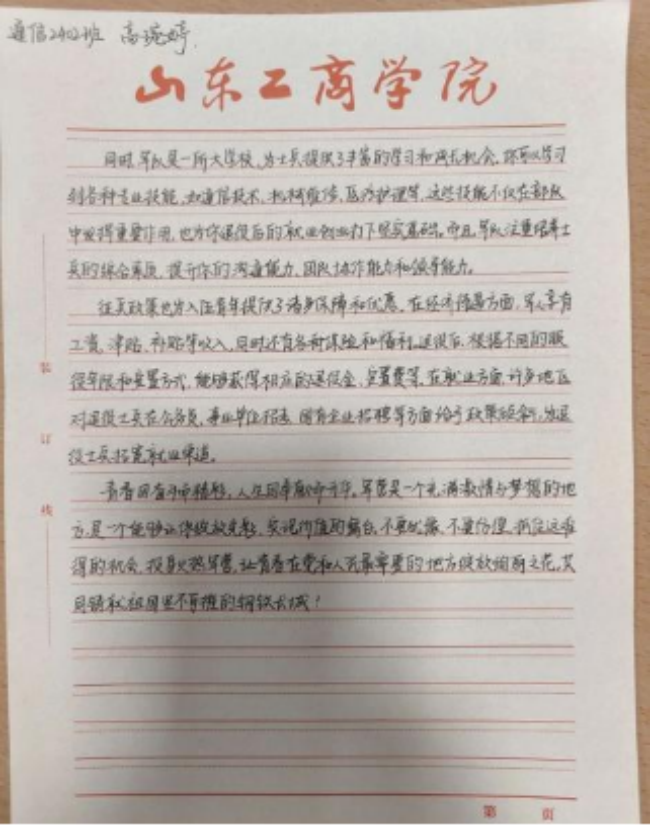 通信2402班 高琬婷
山东工商学院
同时,军队是一所大学校,为士兵提供了丰富的学习和成长机会,你可以学习
到各种专业技能,如通信技术、机械维修、医疗护理等,这些技能不仅在部队
中发挥重要作用,也为你退役后的就业创业打下坚实基础。而且,军队注重培养士
兵的综合素质,提升你的沟通能力、团队协作能力和领导能力。
征兵政策也为入伍青年提供了诸多保障和优惠。在经济待遇方面,军人享有
工资、津贴、补贴等收入,同时还有各种保险和福利。退役后,根据不同的服
役年限和安置方式,能够获得相应的退役金、安置费等。在就业方面,许多地区
对退役士兵在公务员、事业单位招考、国有企业招聘等方面给予政策倾斜,为退
役士兵拓宽就业渠道。
青春因奋斗而精彩,人生因奉献而升华。军营是一个充满激情与梦想的地
方,是一个能够让你绽放光彩、实现价值的舞台。不要犹豫,不要彷徨,抓住这难
得的机会,投身火热军营,让青春在党和人民最需要的地方绽放绚丽之花,共
同铸就祖国坚不可摧的钢铁长城!
装
订
线
第 页